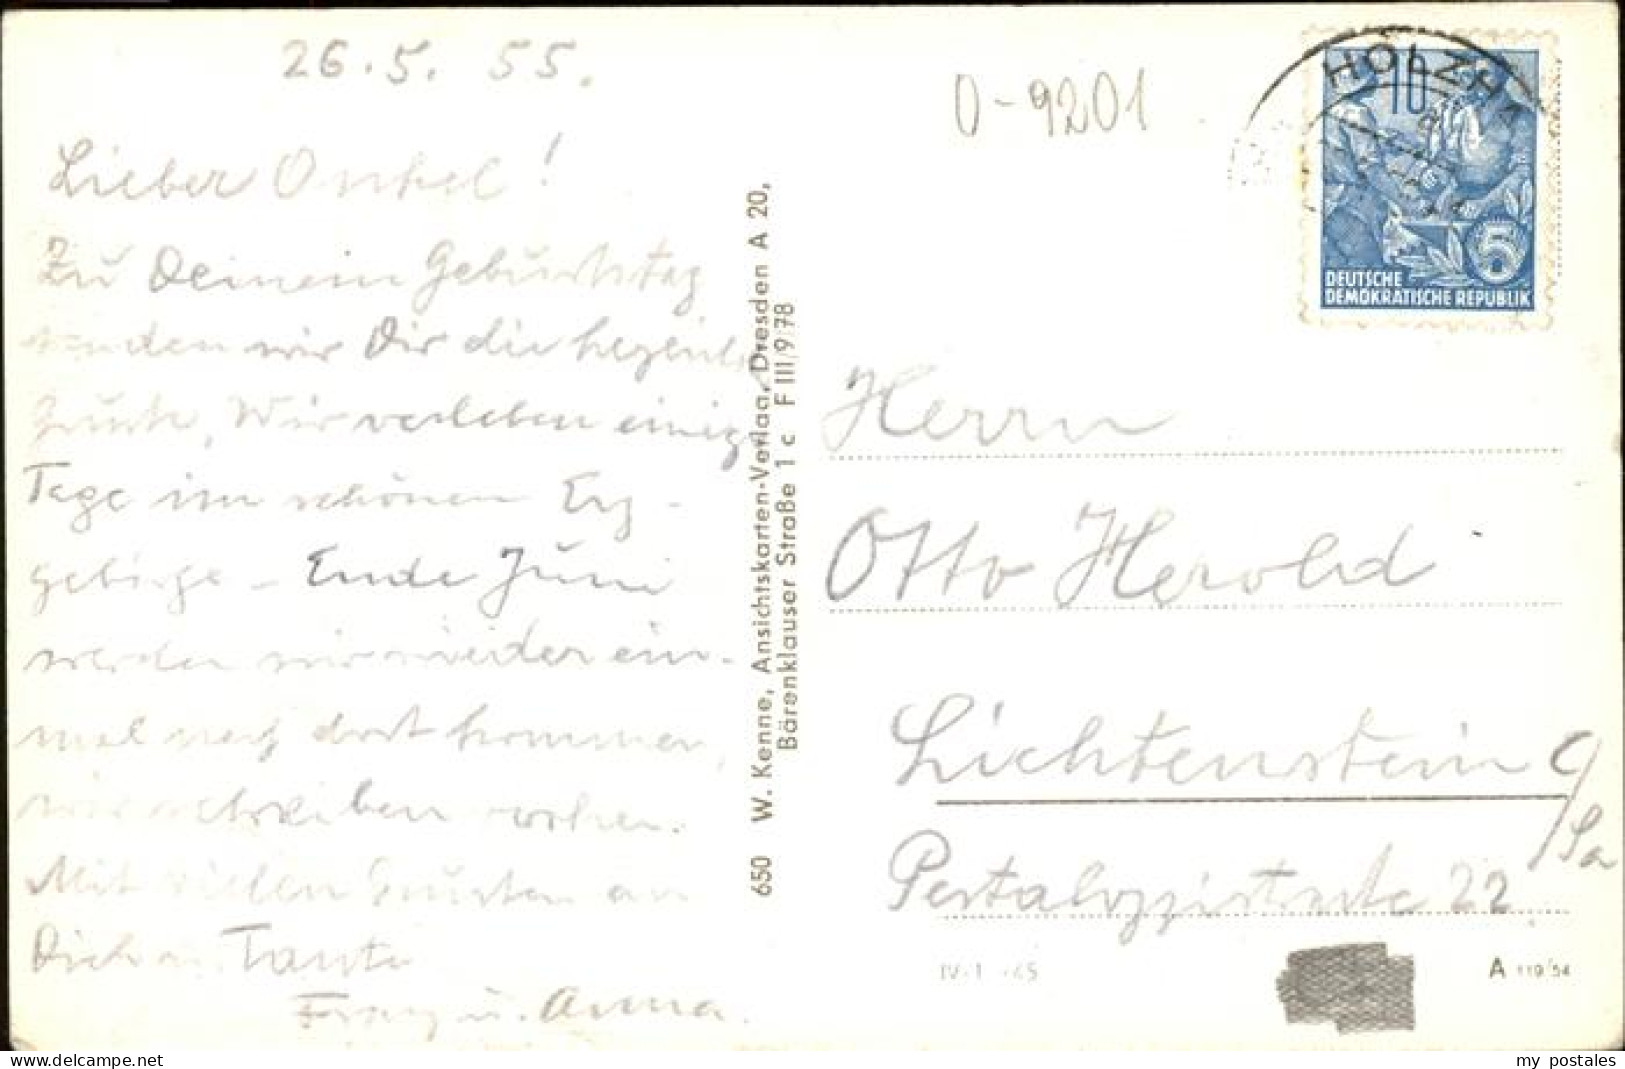 26.5.55.
Lieber Onkel!
Zu Deinem Geburtstag
senden wir Dir die herzlich
Grüße. Wir verleben einige
Tage im schönen Erz-
gebirge – Ende Juni
werden wir wieder ein-
mal nach dort kommen,
wir schreiben vorher.
Mit vielen Grüßen an
Dich u. Tante
Franz u. Anna.
650 W. Kenne, Ansichtskarten-Verlag, Dresden A 20,
Bärenklauser Straße 1 c F III/9/78
0-9201
HOLZH
10
5
DEUTSCHE
DEMOKRATISCHE REPUBLIK
Herrn
Otto Herold
Lichtenstein
/Sa
Pestalozzistraße 22
A 119/54
www.delcampe.net
my_postales